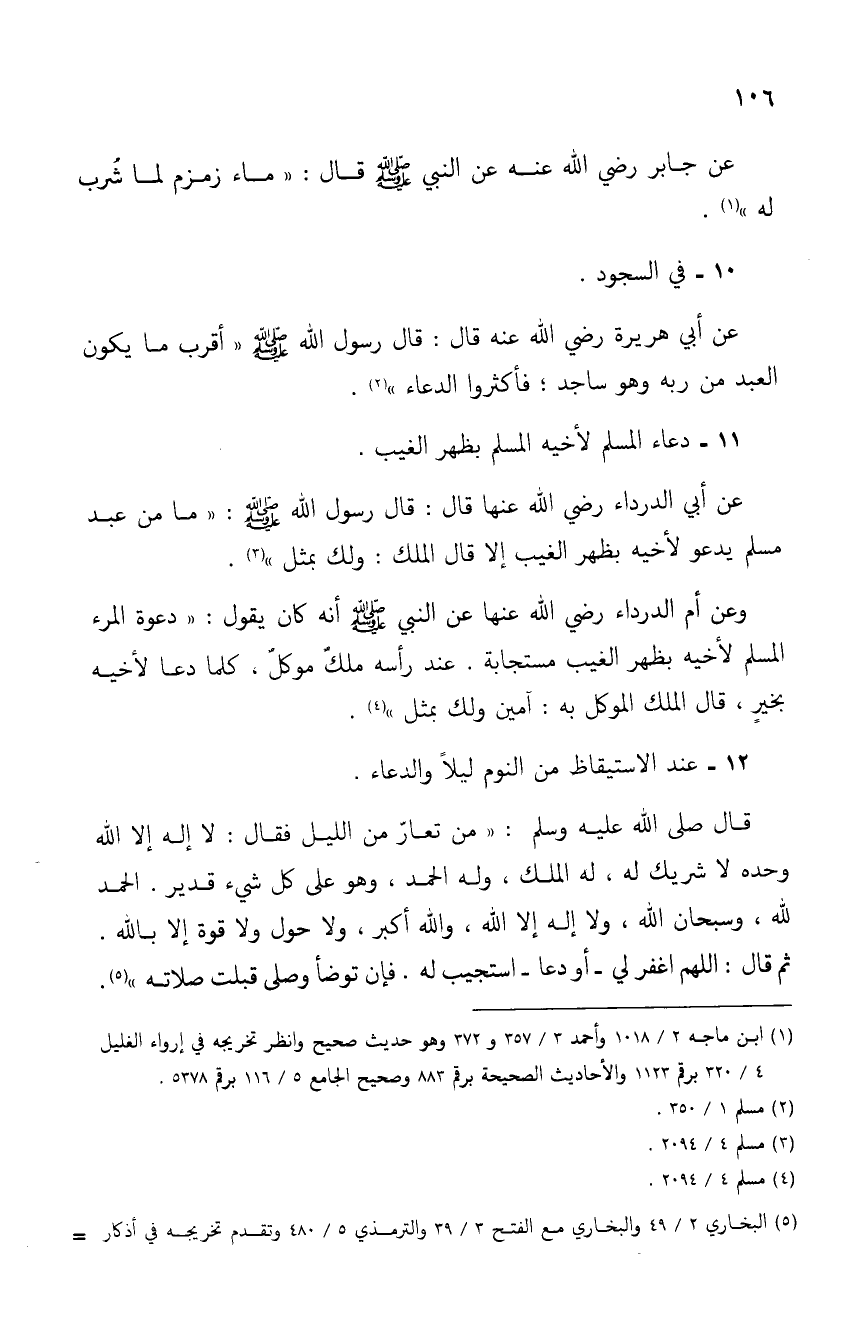 ١٠٦
عن جـابر رضي الله عنـه عن النبي ﷺ قـال : « مـاء زمـزم لمـا شُرب
له »(١) .
١٠ ـ في السجود .
عن أبي هريرة رضي الله عنه قال : قال رسول الله ﷺ « أقرب مـا يكون
العبد من ربه وهو ساجد ؛ فأكثروا الدعاء »(٢) .
١١ ـ دعاء المسلم لأخيه المسلم بظهر الغيب .
عن أبي الدرداء رضي الله عنها قال : قال رسول الله ﷺ : « مـا من عبـد
مسلم يدعو لأخيه بظهر الغيب إلا قال الملك : ولك بمثل »(٣) .
وعن أم الدرداء رضي الله عنها عن النبي ﷺ أنه كان يقول : « دعوة المرء
المسلم لأخيه بظهر الغيب مستجابة . عند رأسه ملكٌ موكلٌ ، كلما دعـا لأخيـه
بخيرٍ ، قال الملك الموكل به : آمين ولك بمثل »(٤) .
١٢ ـ عند الاستيقاظ من النوم ليلاً والدعاء .
قـال صلى الله عليـه وسلم : « من تعـارّ من الليـل فقـال : لا إلـه إلا الله
وحده لا شريك له ، له الملـك ، ولـه الحمـد ، وهو على كل شيء قـدير . الحمـد
لله ، وسبحان الله ، ولا إلـه إلا الله ، والله أكبر ، ولا حول ولا قوة إلا بـالله .
ثم قال : اللهم اغفر لي ـ أو دعا ـ استجيب له . فإن توضأ وصلى قبلت صلاتـه »(٥).
(١) ابـن ماجـه ٢ / ١٠١٨ وأحمد ٣ / ٣٥٧ و ٣٧٢ وهو حديث صحيح وانظر تخريجه في إرواء الغليل
٤ / ٣٢٠ برقم ١١٢٣ والأحاديث الصحيحة برقم ٨٨٣ وصحيح الجامع ٥ / ١١٦ برقم ٥٣٧٨ .
(٢) مسلم ١ / ٣٥٠ .
(٣) مسلم ٤ / ٢٠٩٤ .
(٤) مسلم ٤ / ٢٠٩٤ .
(٥) البخـاري ٢ / ٤٩ والبخـاري مـع الفتـح ٣ / ٣٩ والترمـذي ٥ / ٤٨٠ وتقـدم تخريجـه في أذكار =